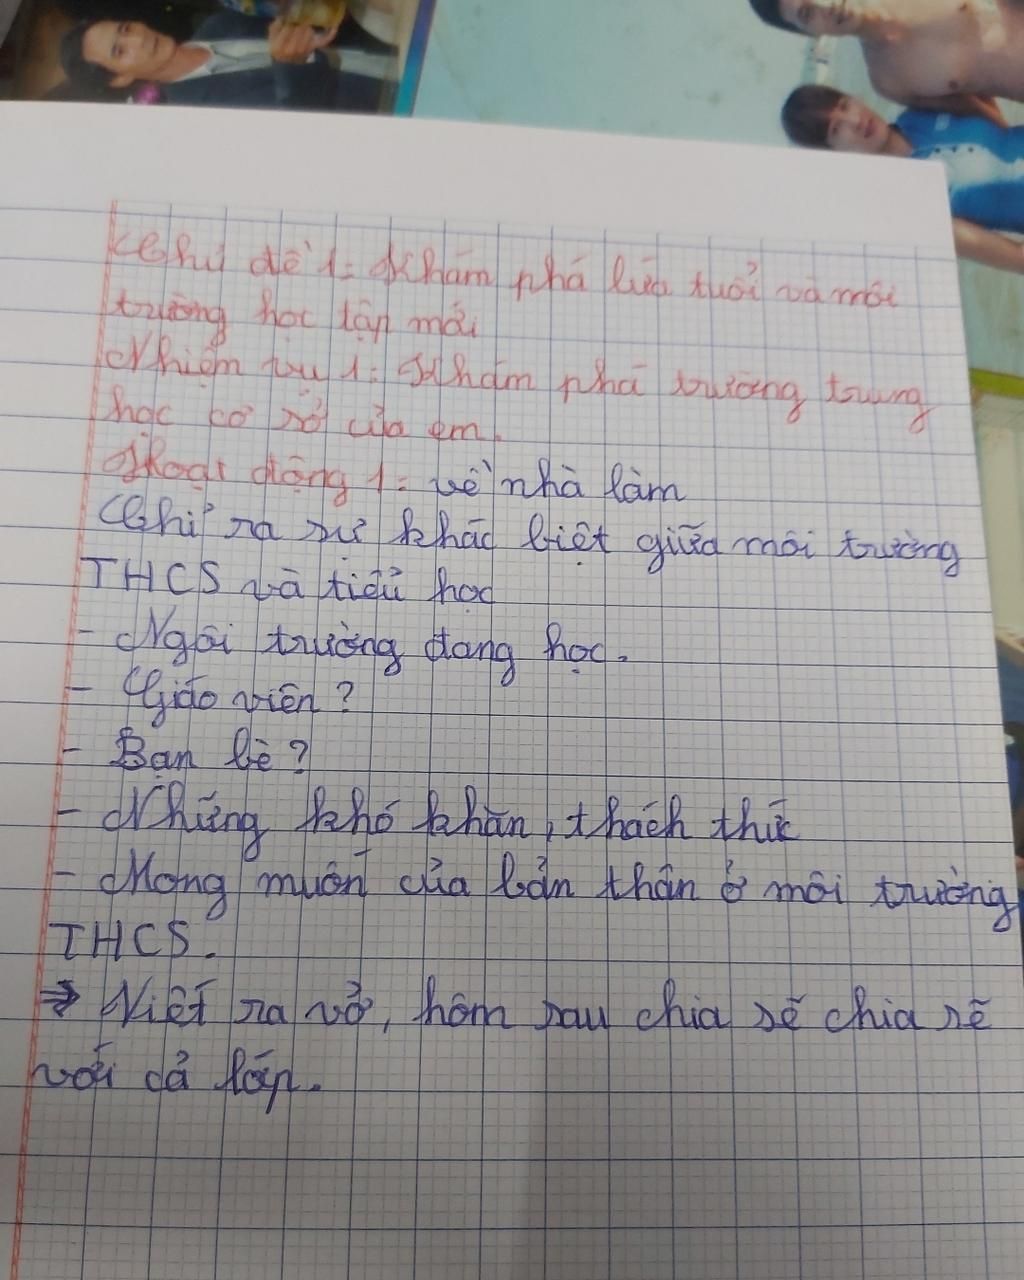 Chủ đề 1: Khám phá lứa tuổi và môi
trường học tập mới
Nhiệm vụ 1: Khám phá trường trung
học cơ sở của em.
Hoạt động 1: về nhà làm
Chỉ ra sự khác biệt giữa môi trường
THCS và tiểu học
- Ngôi trường đang học.
- Giáo viên?
- Bạn bè?
- Những khó khăn, thách thức
- Mong muốn của bản thân ở môi trường
THCS.
⇒ Viết ra vở, hôm sau chia sẽ chia sẽ
với cả lớp.